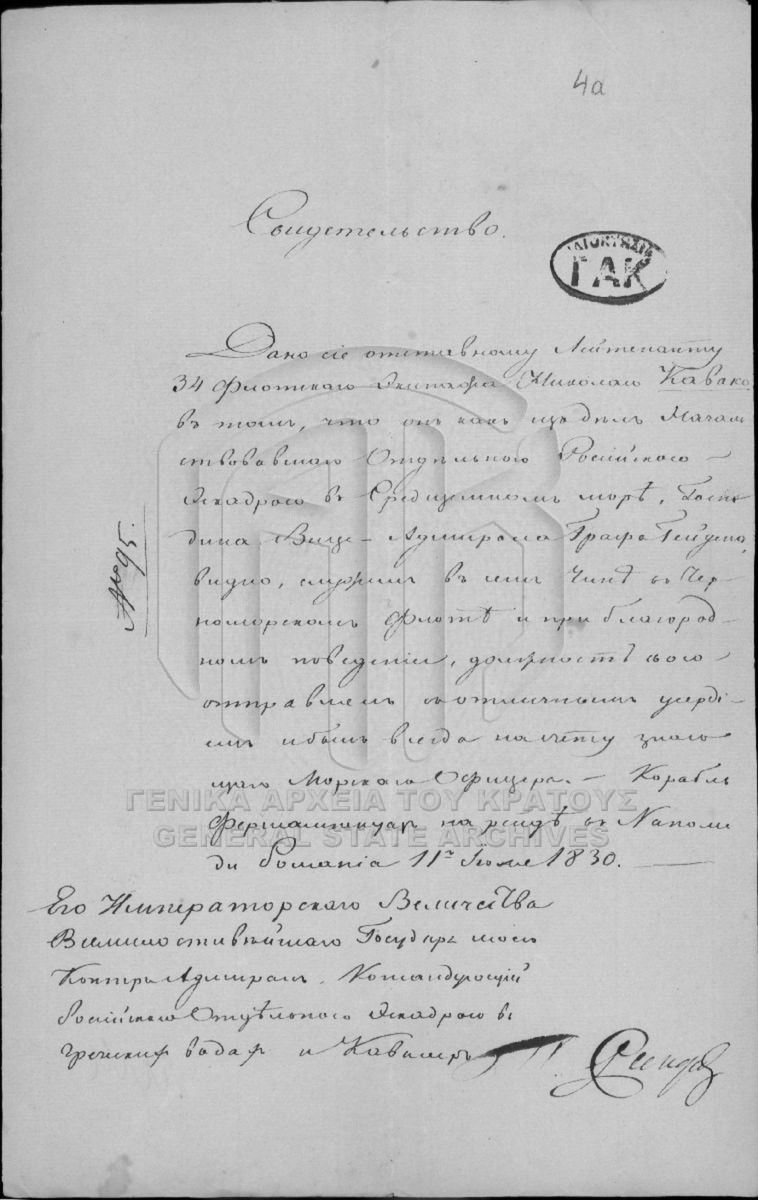 4а
Свидетельство.
ΙΔΙΟΚΤΗΣΙΑ
ΓΑΚ
Дано сіе отставному Лейтенанту
34 Флотскаго Экипажа Николаю Кавако
въ томъ, что онъ какъ изъ дѣлъ Началь
ствовавшаго Отдѣльною Россійскою
Эскадрою въ Средиземномъ морѣ, Госпо
дина Вице-Адмирала Графа Гейдена,
видно, служилъ въ семъ Чинѣ въ Чер
номорскомъ Флотѣ и при благород
номъ поведеніи, должность свою
отправлялъ съ отличнымъ усерді
емъ и былъ всегда на счету знаю
щаго Морскаго Офицера. — Корабль
на рейдѣ въ Наполи
ди Романіа 11го Іюля 1830.
№ 95.
Его Императорскаго Величества
Всемилостивѣйшаго Государя моего
Контръ Адмиралъ, Командующій
Россійскою Отдѣльною Эскадрою въ
Греческихъ водахъ и Кавалеръ
ΓΕΝΙΚΑ ΑΡΧΕΙΑ ΤΟΥ ΚΡΑΤΟΥΣ
GENERAL STATE ARCHIVES